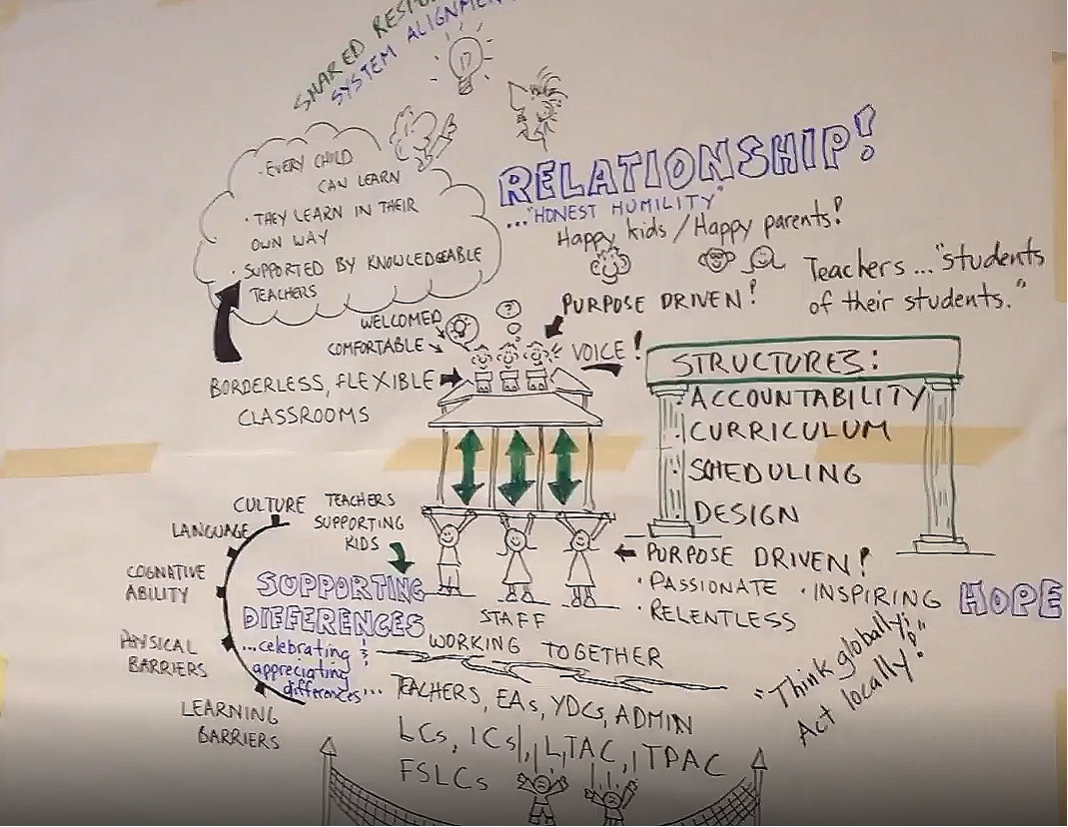 SHARED
SYSTEM ALIGNMENT
• EVERY CHILD
CAN LEARN
• THEY LEARN IN THEIR
OWN WAY
• SUPPORTED BY KNOWLEDGEABLE
TEACHERS
RELATIONSHIP!
..."HONEST HUMILITY"
Happy kids / Happy parents!
Teachers ... "students
of their students."
PURPOSE DRIVEN!
WELCOMED
COMFORTABLE
VOICE!
BORDERLESS, FLEXIBLE
CLASSROOMS
STRUCTURES:
• ACCOUNTABILITY
• CURRICULUM
• SCHEDULING
DESIGN
CULTURE
LANGUAGE
COGNITIVE
ABILITY
PHYSICAL
BARRIERS
LEARNING
BARRIERS
TEACHERS
SUPPORTING
KIDS
SUPPORTING
DIFFERENCES
...celebrating &
appreciating
differences...
STAFF
PURPOSE DRIVEN!
• PASSIONATE • INSPIRING HOPE
• RELENTLESS
WORKING TOGETHER
TEACHERS, EAs, YDCs, ADMIN
LCs, ICs, LTAC, TPAC
FSLCs
"Think globally;
Act locally!"